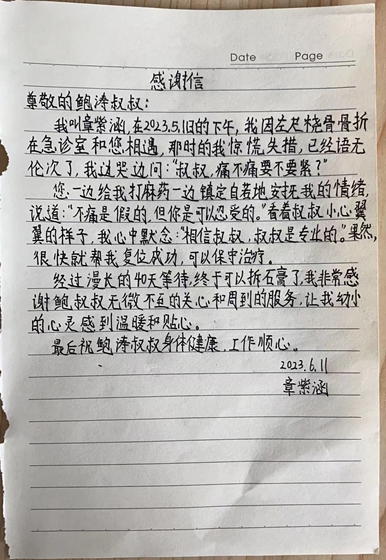 Date Page
感谢信
尊敬的鲍涛叔叔：
我叫章紫涵，在2023.5.1日的下午，我因左尺桡骨骨折
在急诊室和您相遇，那时的我惊慌失措，已经语无
伦次了，我边哭边问：“叔叔，痛不痛要不要紧？”
您一边给我打麻药一边镇定自若地安抚我的情绪，
说道：“不痛是假的，但你是可以忍受的。”看着叔叔小心翼
翼的样子，我心中默念：“相信叔叔，叔叔是专业的。”果然，
很快就帮我复位成功，可以保守治疗。
经过漫长的40天等待，终于可以拆石膏了，我非常感
谢鲍叔叔无微不至的关心和周到的服务，让我幼小
的心灵感到温暖和贴心。
最后祝鲍涛叔叔身体健康，工作顺心。
2023.6.11
章紫涵